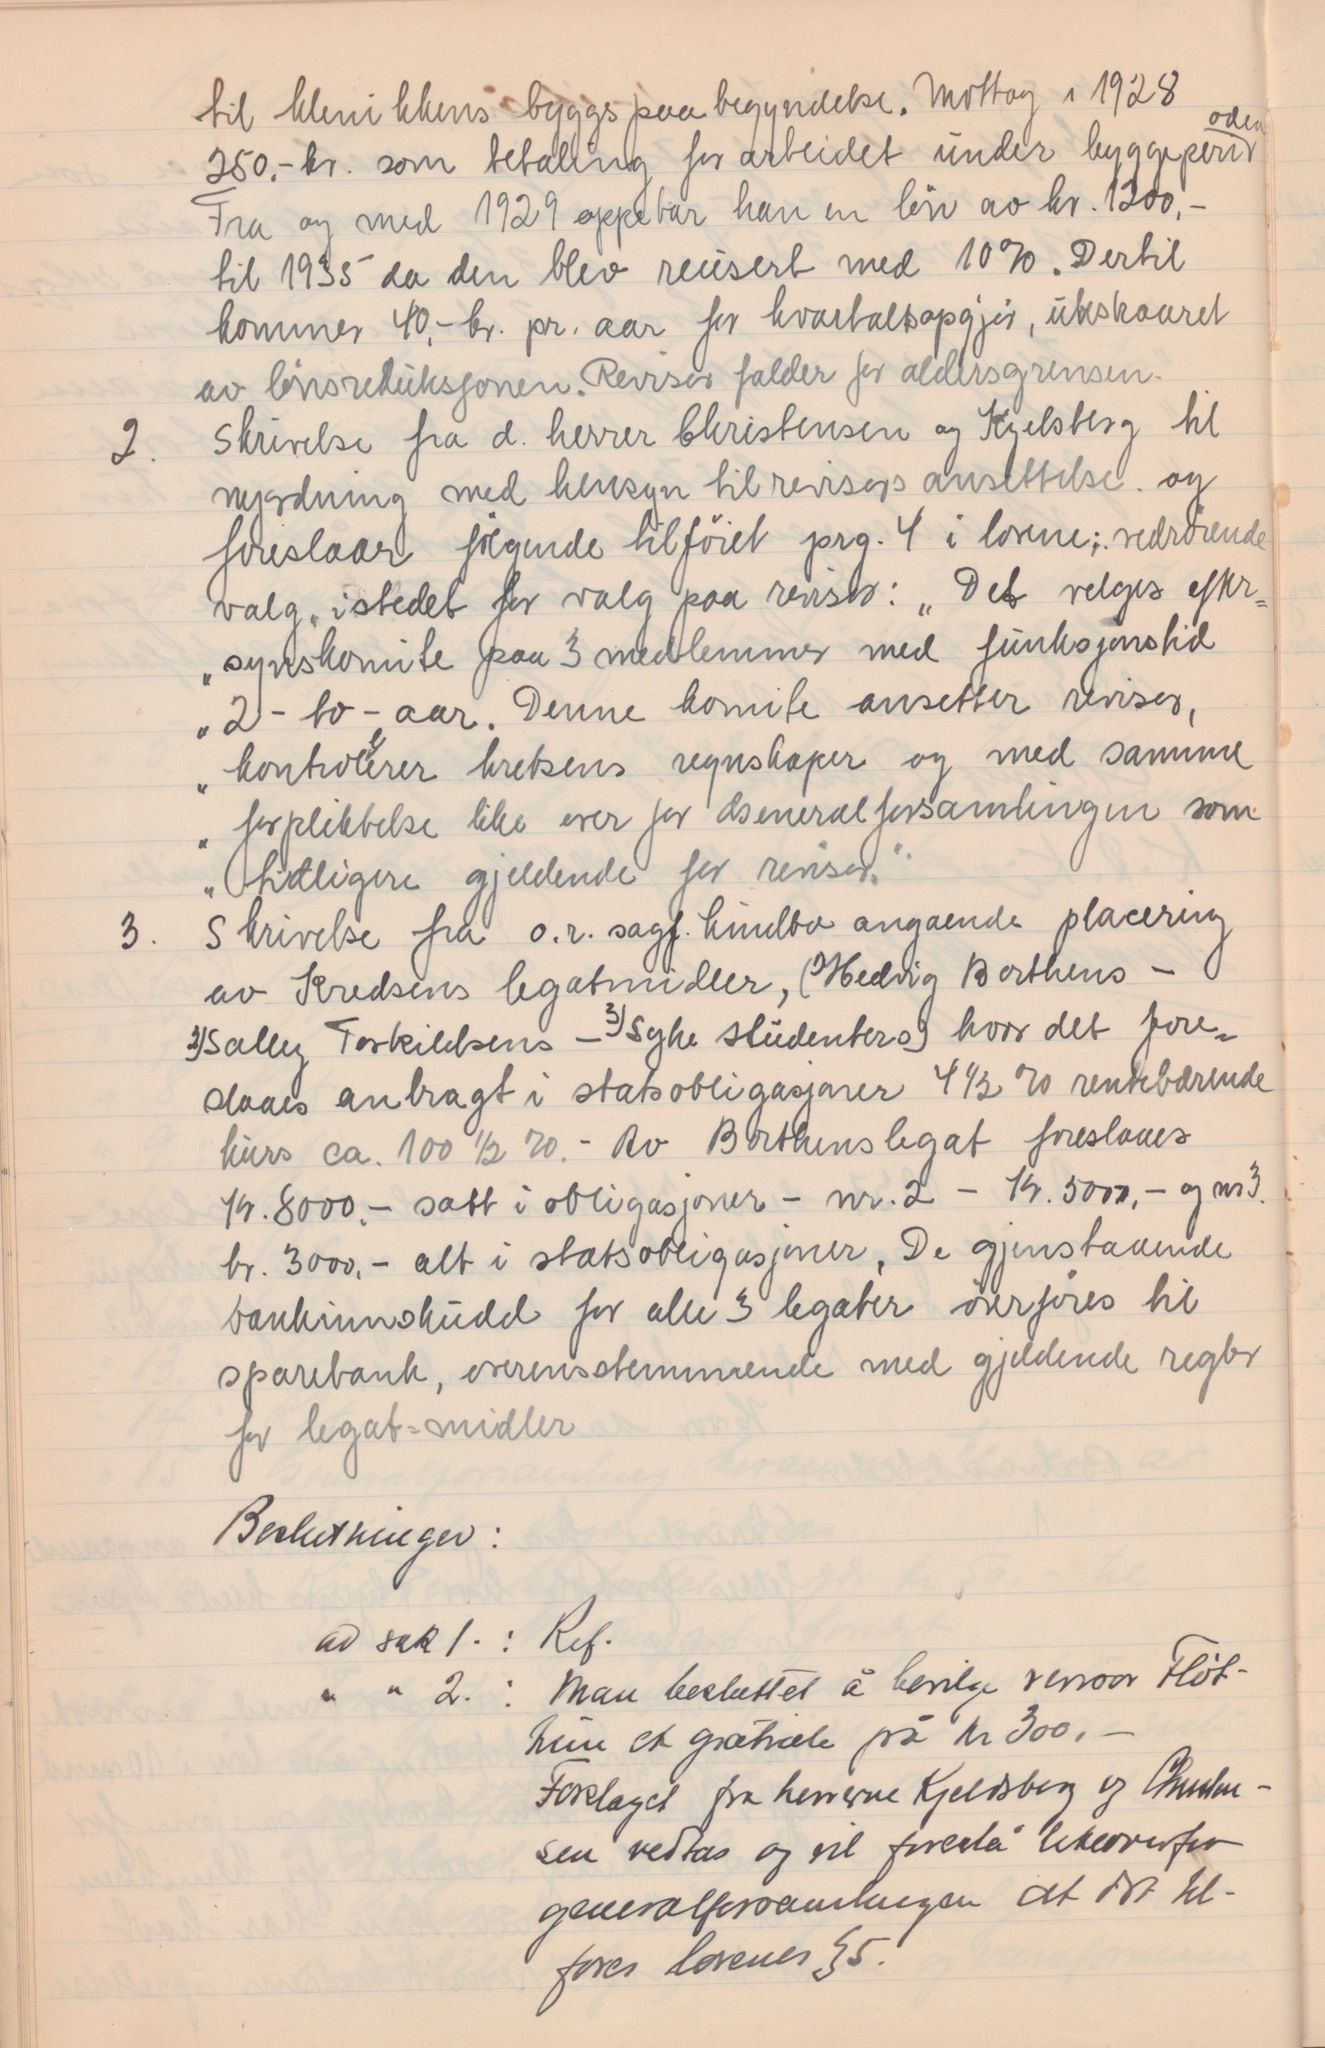 til klenikkens byggs paabegyndelse. Mottog i 1928
250.- kr. som betaling for arbeidet under byggeperioden
Fra og med 1929 oppebar han en lön av kr. 1200,-
til 1935 da den blev reusert med 10%. Dertil
kommer 40,- kr. pr. aar for kvartalsopgjör, utskaaret
av lönsreduksjonen. Revisor falder for aldersgrensen.
2. Skrivelse fra d. herrer Christensen og Kjelsberg til
nyordning med hensyn til revisors ansettelse og
foreslaar fölgende tilföiet prg. 4 i lovene; vedrörende
valg, istedet for valg paa revisor: „Det velges efter=
„synskomite paa 3 medlemmer med funksjonstid
„2 - to - aar. Denne komite ansetter revisor,
„kontrollerer kretsens regnskaper og med samme
„forpliktelse like over for Generalforsamlingen som
„tidligere gjeldende for revisor."
3. Skrivelse fra o.r. sagf. Lindbo angaende placering
av Kredsens legatmidler, (1)Hedvig Borthens -
2)Sally Torkildsens - 3)Syke studenters) hvor det fore-
slaaes anbragt i statsobligasjoner 4 1/2 % rentebærende
kurs ca. 100 1/2 %. - Av Borthens legat foreslaaes
Kr. 8000.- satt i obligasjoner - nr. 2 - Kr. 5000,- og nr 3.
kr. 3000.- alt i statsobligasjoner, De gjenstaaende
bankinnskudd for alle 3 legater överföres til
sparebank, overensstemmende med gjeldende regler
for legat=midler
Beslutninger:
ad sak 1. : Ref.
" " 2. : Man besluttet å bevilge revisor Flöt-
et gratiale på kr 300.-
Forslaget fra herrerne Kjeldsberg og Christen-
sen vedtas og vil foreslå likeoverfor
generalforsamlingen at det til-
föres lovenes §5.